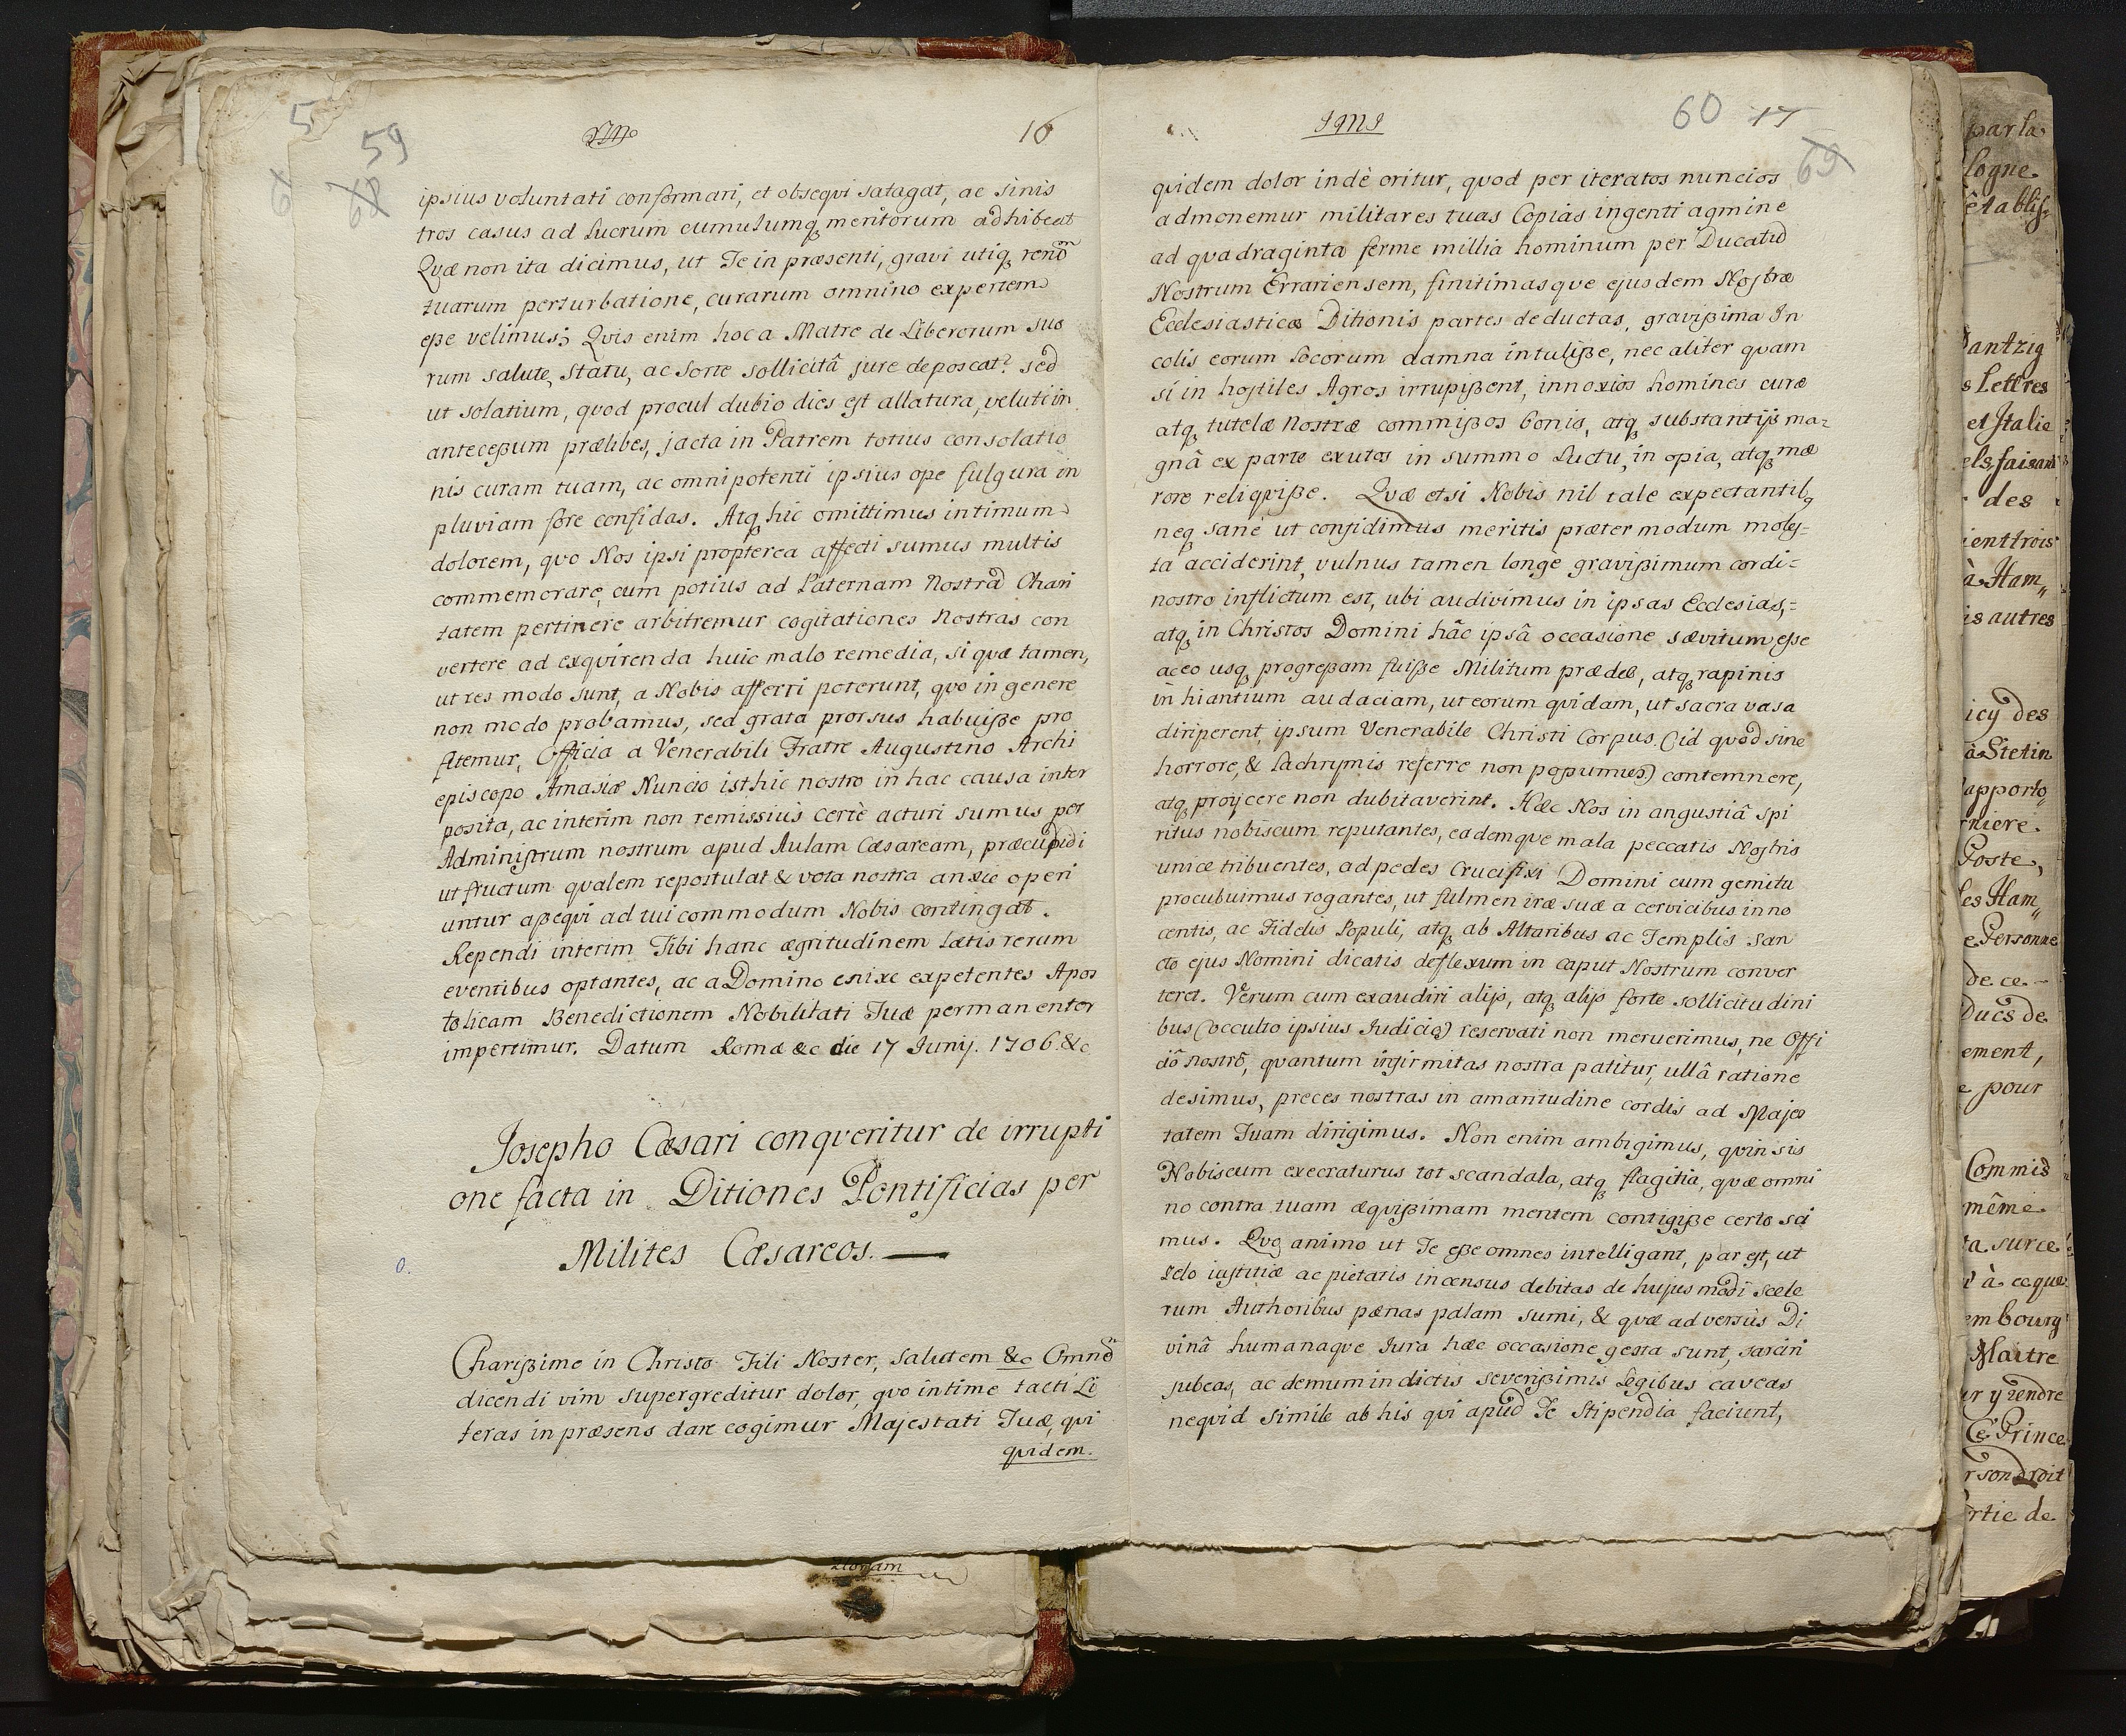 16
5
59
68
ipsius voluntati conformari, et obsequi satagat, ac sinis
tros casus ad Lucrum cumulumq meritorum adhibeat
Quæ non ita dicimus, ut Te in præsenti, gravi utiq rerum
tuarum perturbatione, curarum omnino expertem
eße velimus; Quis enim hoc a Matre de Liberorum suo
rum salute, statu, ac sorte sollicitâ jure deposcat? sed
ut solatium, quod procul dubio dies est allatura, veluti in
anteceßum prælibes, jacta in Patrem totius consolatio
nis curam tuam, ac omnipotenti ipsius ope fulgura in
pluviam fore confidas. Atq hic omittimus intimum
dolorem, quo Nos ipsi propterea affecti sumus multis
commemorare, cum potius ad Paternam Nostrã Chari
tatem pertinere arbitremur cogitationes Nostras con
vertere ad exquirenda huic malo remedia, si quæ tamen,
ut res modo sunt, a Nobis afferri poterunt, quo in genere
non modo probamus, sed grata prorsus habuiße pro
fitemur, Officia a Venerabili Fratre Augustino Archi
episcopo Amasiæ Nuncio isthic nostro in hac causa inter
posita, ac interim non remissiùs certè acturi sumus per
Administrum nostrum apud Aulam Cæsaream, præcupidi
ut fructum qualem repostulat & vota nostra anxie operi
untur aßequi ad tui commodum Nobis contingat.
Rependi interim Tibi hanc ægritudinem lætis rerum
eventibus optantes, ac a Domino enixe expetentes Apos
tolicam Benedictionem Nobilitati Tuæ permanenter
impertimur. Datum Romæ &c die 17 Junij. 1706 &c
Josepho Cæsari conqveritur de irrupti
one facta in Ditiones Pontificias per
Milites Cæsareos. —
o.
Charißime in Christo Fili Noster, salutem &c Omnẽ
dicendi vim supergreditur dolor, quo intime tacti Li
teras in præsens dare cogimur Majestati Tuæ, qui
quidem.
60 17
69
quidem dolor indè oritur, quod per iteratos nuncios
admonemur militares tuas Copias ingenti agmine
ad quadraginta ferme millia hominum per Ducatũ
Nostrum Errariensem, finitimasque ejusdem Nostræ
Ecclesiasticæ Ditionis partes deductas, gravißima In
colis eorum locorum damna intuliße, nec aliter quam
si in hostiles Agros irrupißent, innoxios homines curæ
atq tutelæ nostræ commißos bonis, atq substantijs ma=
gnâ ex parte exutos in summo Luctu, in opia, atq mæ
rore reliquiße. Quæ etsi Nobis nil tale expectantibq
neq sanè ut confidimus meritis præter modum moles=
ta acciderint, vulnus tamen longè gravißimum cordi=
nostro inflictum est, ubi audivimus in ipsas Ecclesias,=
atq in Christos Domini hâc ipsâ occasione sævitum eße
ac eo usq progreßam fuiße Militum prædæ, atq rapinis
in hiantium audaciam, ut eorum quidam, ut sacra vasa
diriperent, ipsum Venerabile Christi Corpus (id quod sine
horrore, & lachrymis referre non poßumus) contemnere,
atq proijcere non dubitaverint. Hæc Nos in angustiâ spi
ritus nobiscum reputantes, eademque mala peccatis Nostris
unicæ tribuentes, ad pedes Crucifixi Domini cum gemitu
procubuimus rogantes, ut fulmen iræ suæ a cervicibus inno
centis, ac Fidelis Populi, atq ab Altaribus ac Templis San
cto ejus Nomini dicatis deflexum in caput Nostrum conver
teret. Verum cum exaudiri alijs, atq alijs forte sollicitudini
bus (occulto ipsius Judicio) reservati non meruerimus, ne Offi
ciô nostrô, quantum infirmitas nostra patitur, ullâ ratione
desimus, preces nostras in amaritudine cordis ad Majes
tatem Tuam dirigimus. Non enim ambigimus, quin sis
Nobiscum execraturus tot scandala, atq flagitia, quæ omni
no contra tuam æquißimam mentem contigiße certo sci
mus. Quo animo ut Te eße omnes intelligant, par est, ut
zelo iustitiæ ac pietatis incensus debitas de hujusmodi scele
rum Authoribus pænas palam sumi, & quæ adversùs Di
vinâ humanaque Jura hæc occasione gesta sunt, sarciri
jubeas, ac demum indictis severißimis Legibus caveas
nequid simile ab his qui apud Te stipendia faciunt,
par la
logne
établis
Dantzig
s Lettres
et Italie
els, faisant
des
ient trois
à Ham„
is autres
icy des
à Stetin
apporto
rniere
Poste,
les Ham„
e Personne
de ce -
Ducs de
ement,
e pour
Commis
même
ta surce
à ce que
embourg
Maitre
ur y rendre
Ce Prince
r son droit
rtie de